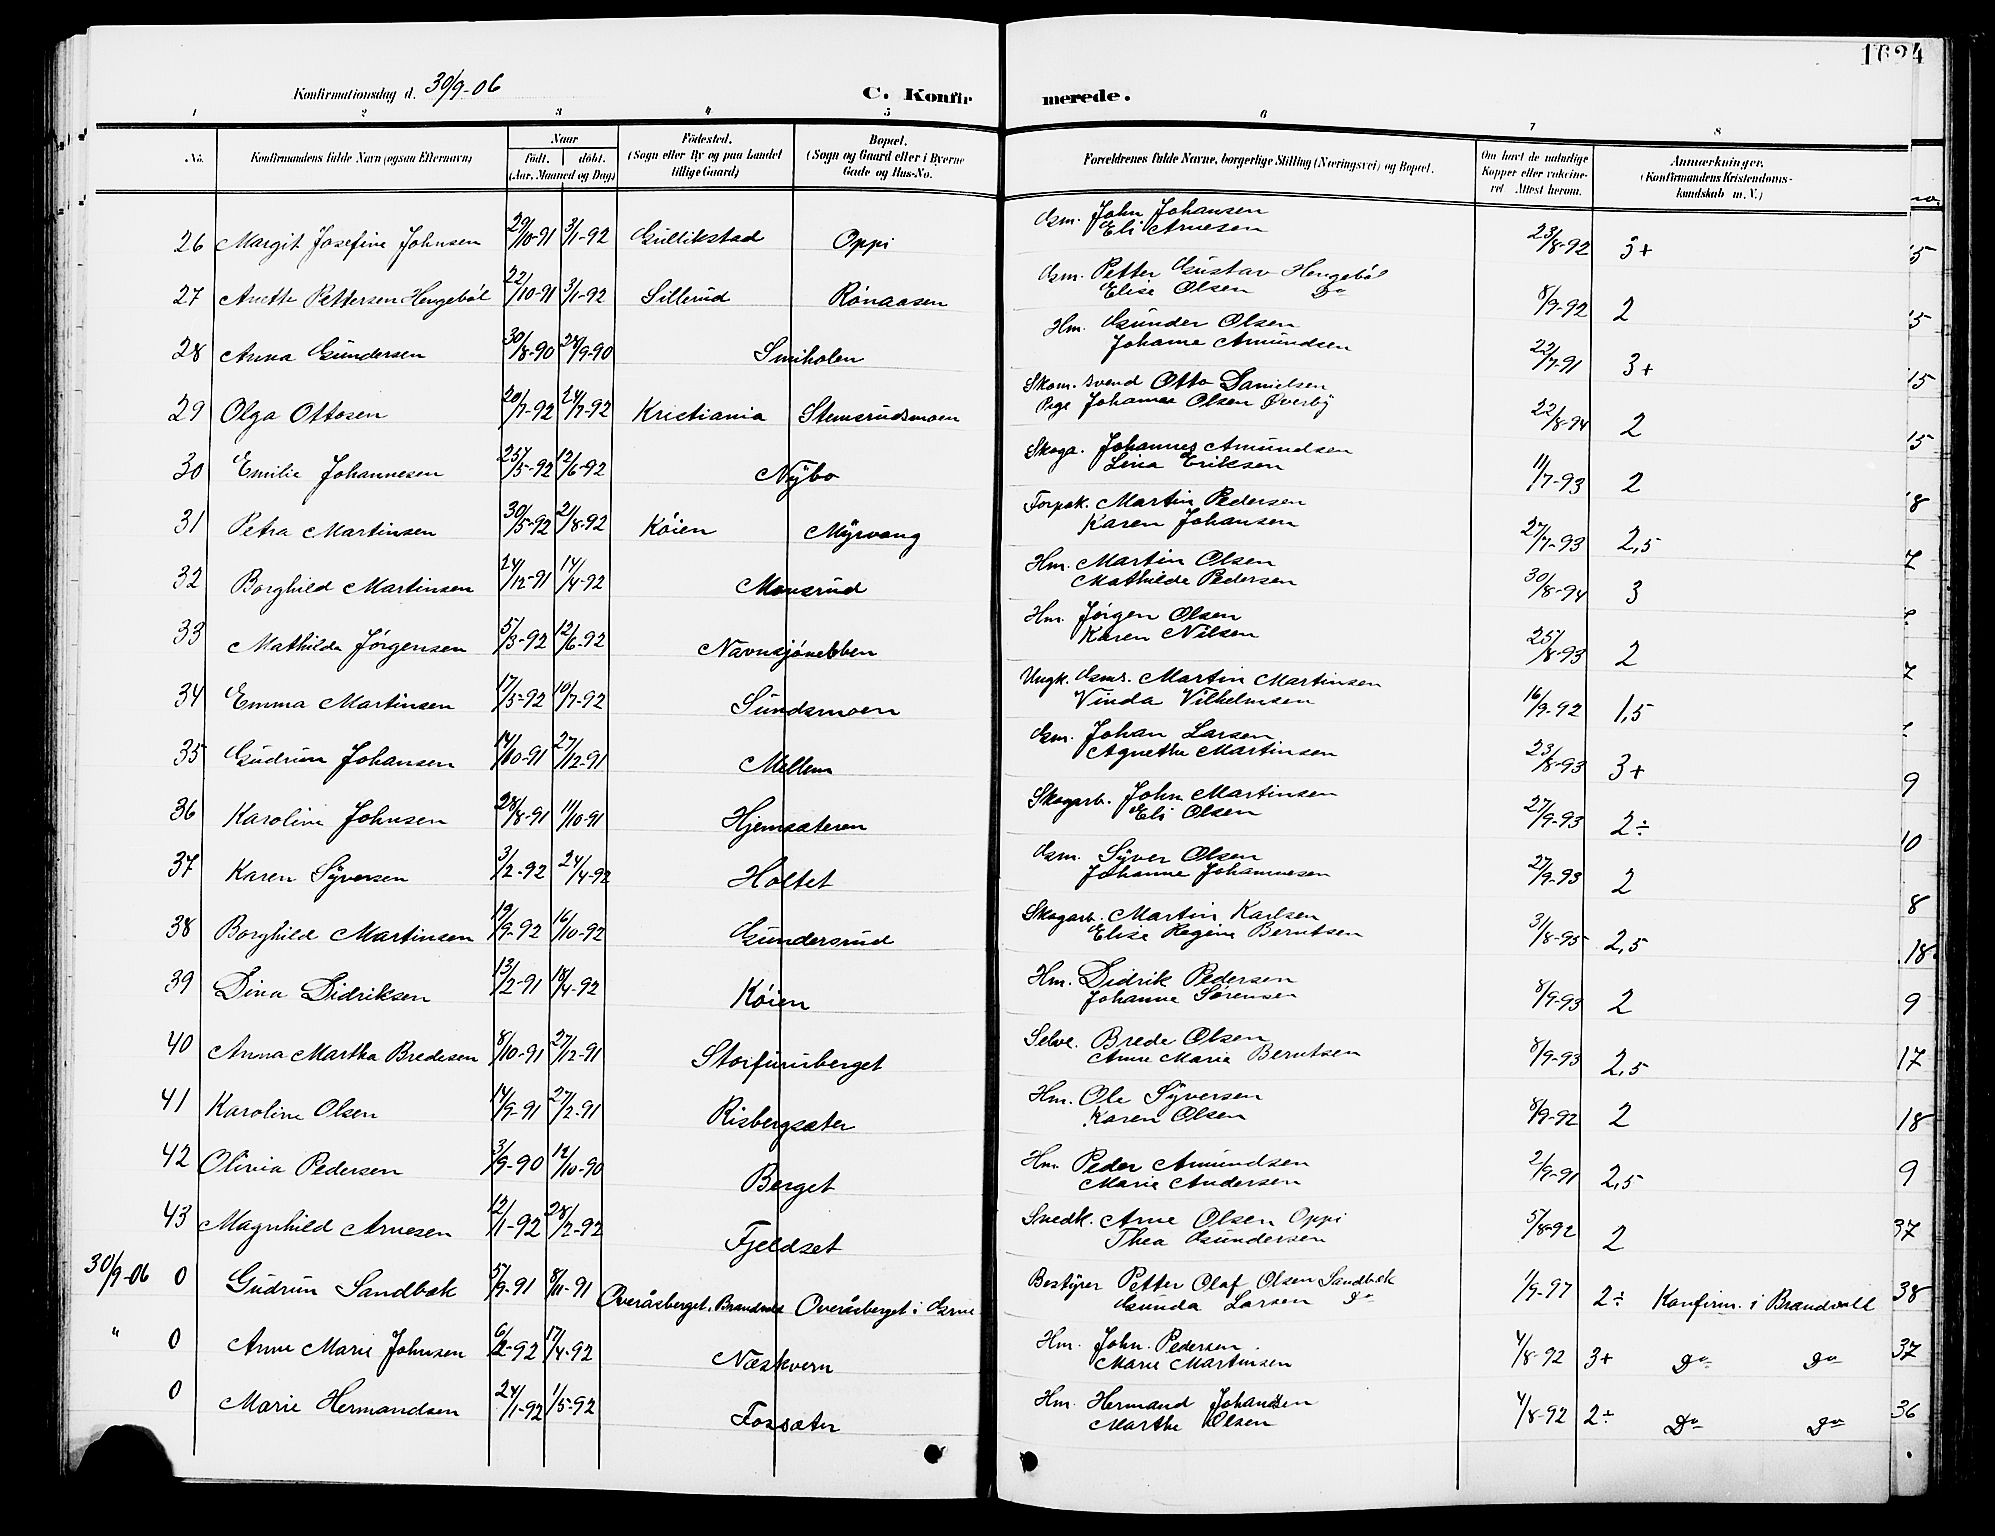 Konfirmationsdag d. 30/9-06 C. Konfirmerede.
1 2 3 4 5 6 7 8
No. Konfirmandens fulde Navn (ogsaa Efternavn) Naar født. døbt. (Aar, Maaned og Dag) Fødested. (Sogn eller By og paa Landet tillige Gaard) Bopæl. (Sogn og Gaard eller i Byerne Gade og Hus-No. Forældrenes fulde Navne, borgerlige Stilling (Næringsvei) og Bopæl. Om havt de naturlige Kopper eller vakcineret Attest herom. Anmærkninger. (Konfirmandens Kristendomskundskab m. V.)
26 Margit Josefine Johnsen 29/10-91 3/1-92 Gullikstad Oppi Gsm. John Johansen
Eli Arnesen 23/8-92 3+
27 Anette Pettersen Hengebøl 22/10-91 3/1-92 Sillerud Rønaasen Gsm. Petter Gustav Hengebøl
Elise Olsen Do 8/9-92 2
28 Anna Gundersen 30/8-90 28/9-90 Smiholen Hm. Gunder Olsen
Johanne Amundsen 22/7-91 3+
29 Olga Ottosen 20/7-92 24/7-92 Kristiania Stemsrudsmoen Skom. svend Otto Danielsen
Pige Johanne Olsen Øverby 22/8-94 2
30 Emilie Johannesen 25/5-92 12/6-92 Nybo Skoga. Johannes Amundsen
Lina Eriksen 11/7-93 2
31 Petra Martinsen 30/5-92 21/8-92 Køien Myrvang Forpak. Martin Pedersen
Karen Johansen 27/7-93 2,5
32 Borghild Martinsen 24/12-91 14/4-92 Monsrud Hm. Martin Olsen
Mathilde Pedersen 30/8-94 3
33 Mathilde Jørgensen 5/3-92 12/6-92 Navnsjønebben Hm. Jørgen Olsen
Karen Nilsen 25/8-93 2
34 Emma Martinsen 17/5-92 10/7-92 Sundsmoen Ungk. Gsms. Martin Martinsen
Vinda Vilhelmsen 16/9-92 1,5
35 Gudrun Johansen 14/10-91 27/12-91 Mellem Gsm. Johan Larsen
Agnethe Martinsen 23/8-93 3+
36 Karoline Johnsen 28/8-91 11/10-91 Hjemsæteren Skogarb. John Martinsen
Eli Olsen 27/9-93 2÷
37 Karen Syversen 3/2-92 24/4-92 Holtet Gsm. Syver Olsen
Johanne Johannesen 27/9-93 2
38 Borghild Martinsen 19/9-92 16/10-92 Gundersrud Skogarb. Martin Karlsen
Elise Regine Berntsen 31/8-95 2,5
39 Dina Didriksen 13/2-91 18/4-92 Køien Hm. Didrik Pedersen
Johanne Sørensen 8/9-93 2
40 Anna Martha Bredesen 8/10-91 27/12-91 Storfuruberget Selve. Brede Olsen
Anne Marie Berntsen 8/9-93 2,5
41 Karoline Olsen 14/9-91 27/2-91 Risbergsæter Hm. Ole Syversen
Karen Olsen 8/9-92 2
42 Olivia Pedersen 3/9-90 12/10-90 Berget Hm. Peder Amundsen
Marie Andersen 2/9-91 2,5
43 Magnhild Arnesen 12/1-92 28/2-92 Fjeldset Snedk. Arne Olsen Oppi
Thea Gundersen 5/8-92 2
30/9-06 0 Gudrun Sandbæk 5/9-91 8/11-91 Overåsberget, Brandvold Overåsberget i Grue Bestyrer Petter Olaf Olsen Sandbæk
Gunda Larsen Do 1/9-97 2÷ Konfirm. i Brandvall
" 0 Anne Marie Johnsen 6/2-92 17/4-92 Næskvern Hm. John Pedersen
Marie Martinsen 4/8-92 3+ Do Do
0 Marie Hermandsen 24/1-92 1/5-92 Fossæter Hm. Hermand Johansen
Marthe Olsen 4/8-92 2÷ Do Do